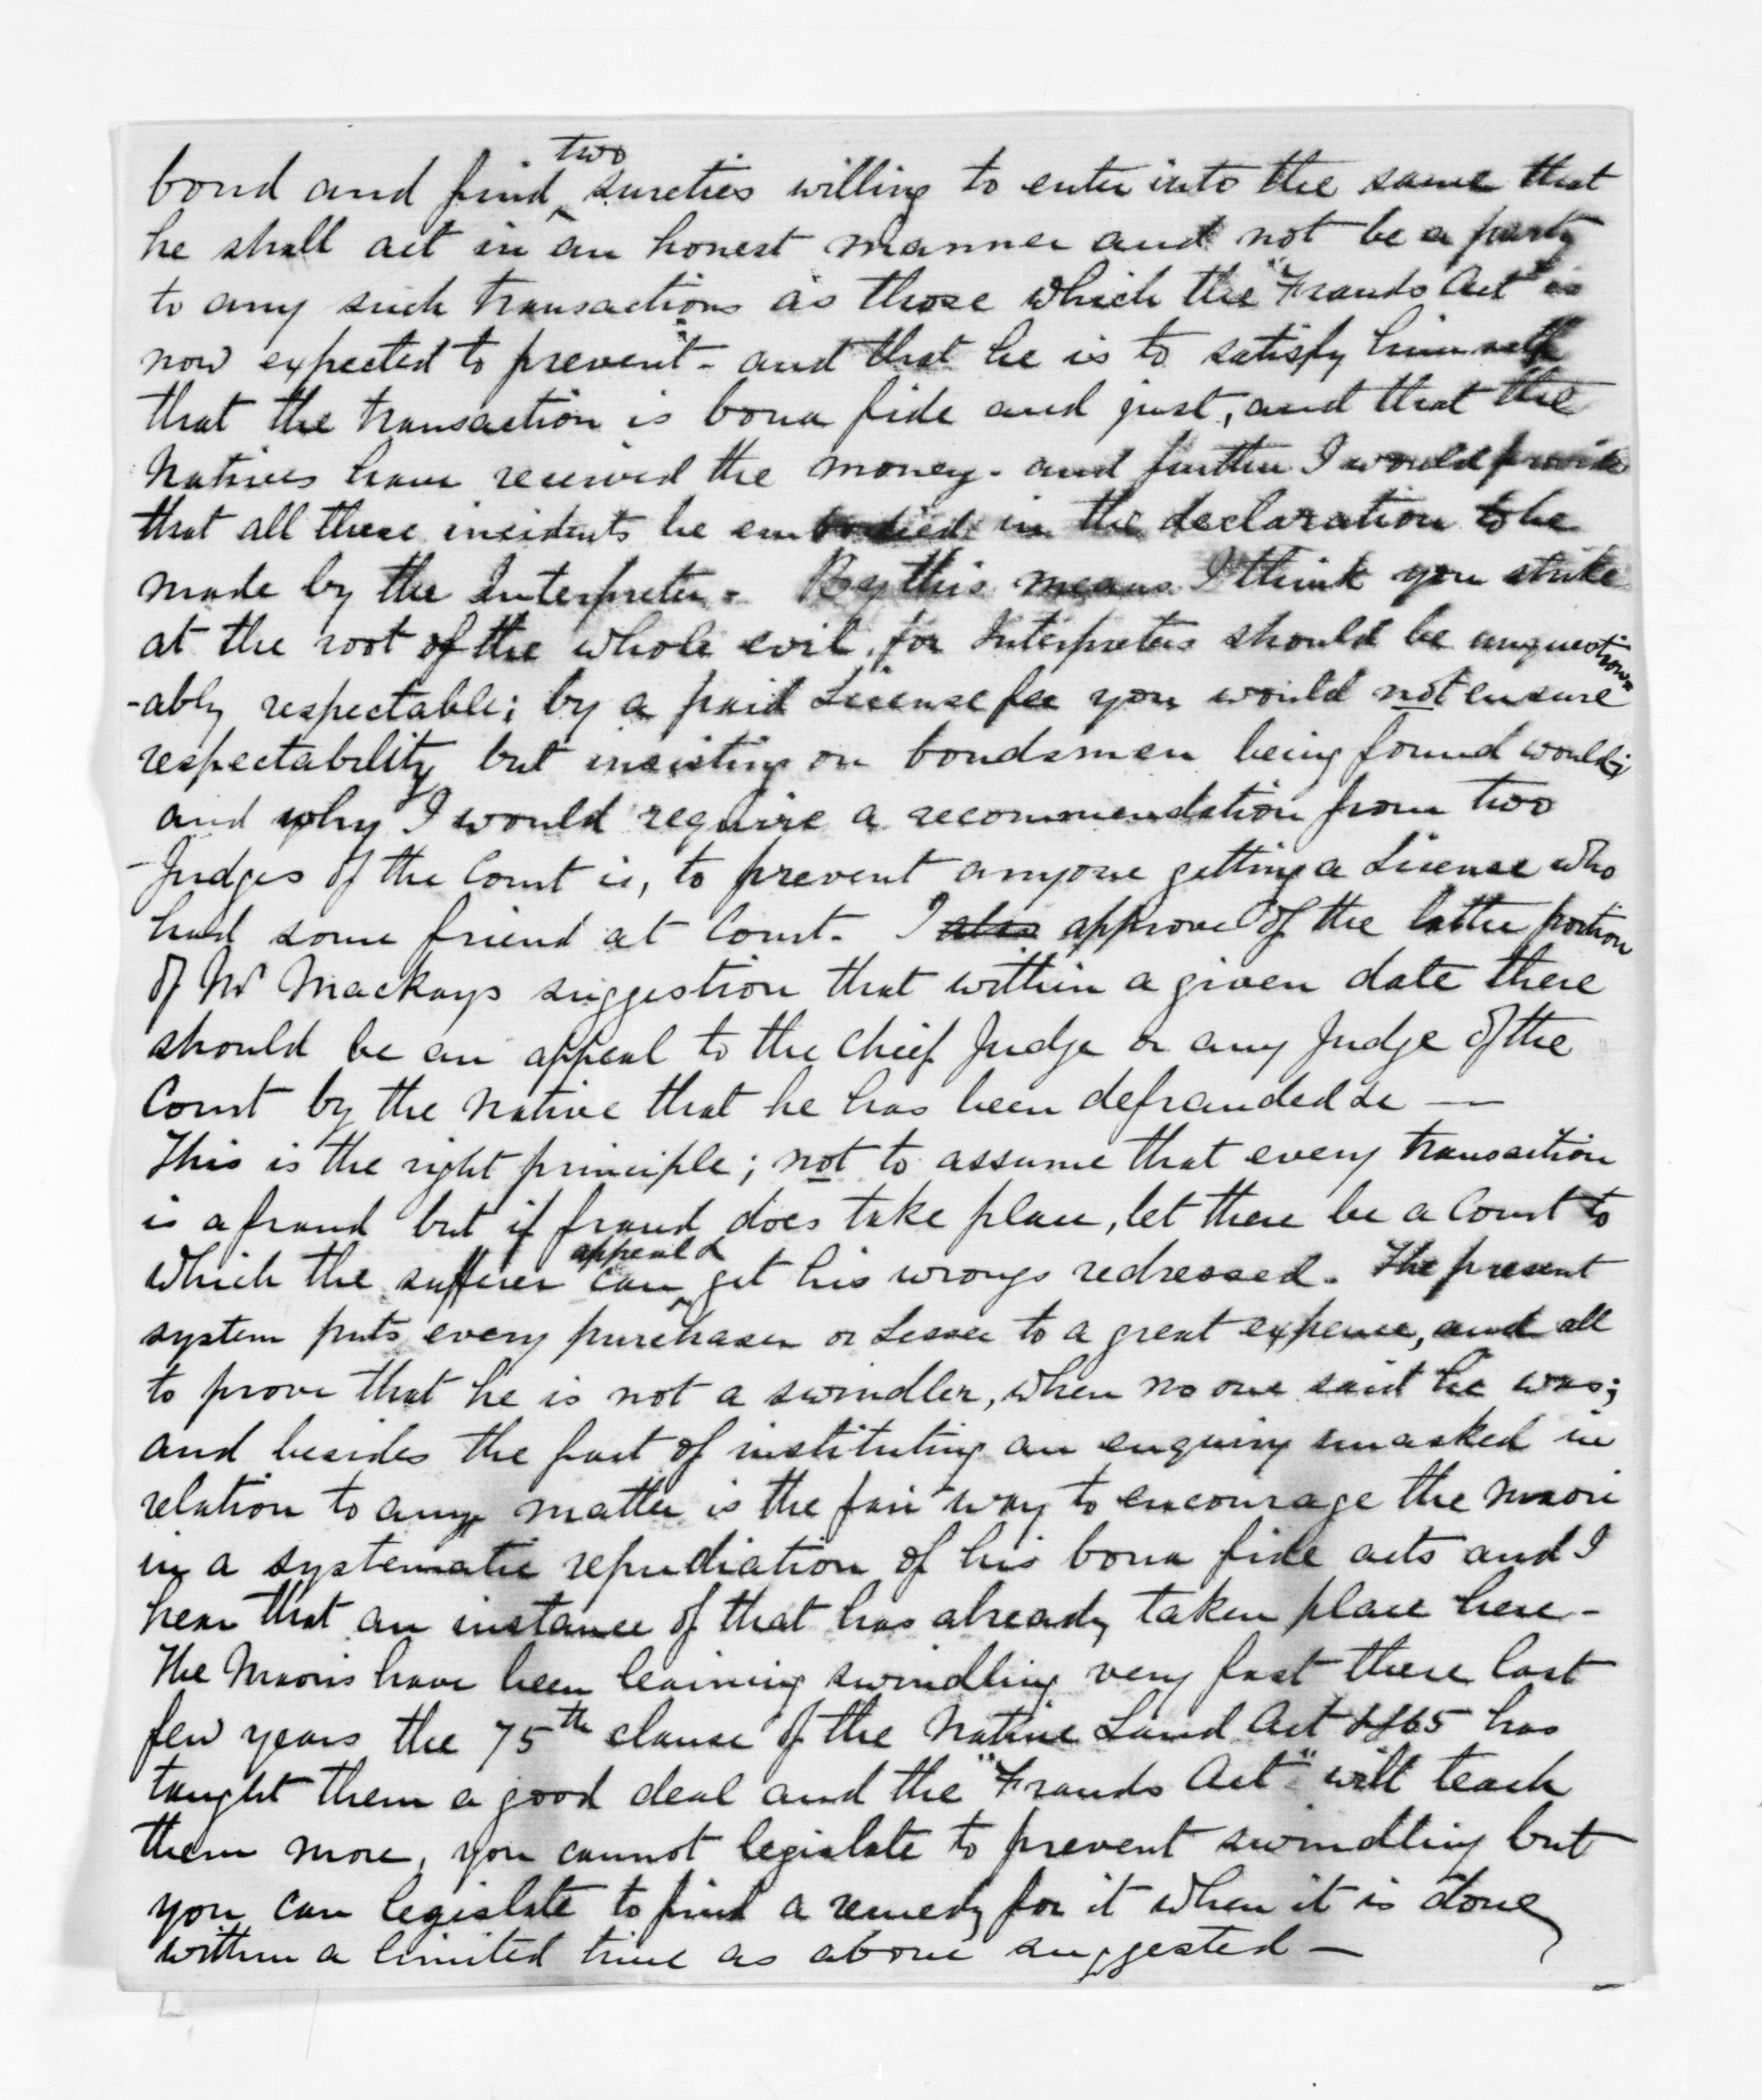 bond and find two sureties willing to enter into the same that
he shall act in an honest manner and not be a party
to any such transactions as those which the "Frauds Act" is
now expected to prevent - and that he is to satisfy himself
that the transaction is bona fide and just, and that the
Natives have received the money - and further I would provide
that all these incidents be embodied in the declaration to be
made by the Interpreter - By this means I think you strike
at the root of the whole evil, for Interpreters should be unquestion
-ably respectable; by a paid License fee you would not ensure
respectability but insisting on bondsmen being found would;
and why I would require a recommendation from two
Judges of the Court is, to prevent anyone getting a License who
had some friend at Court. I also approve of the latter portion
of Mr Mackays suggestion that within a given date there
should be an appeal to the Chief Judge or any Judge of the
Court by the Native that he has been defrauded &c —
This is the right principle; not to assume that every transaction
is a fraud but if fraud does take place, let there be a Court to
which the sufferer can appeal & get his wrongs redressed. The present
system puts every purchaser or Lessee to a great expence, and all
to prove that he is not a swindler, when no one said he was;
and besides the fact of instituting an enquiry unasked in
relation to any matter is the fair way to encourage the Maori
in a systematic repudiation of his bona fide acts and I
hear that an instance of that has already taken place here -
The Maoris have been learning swindling very fast these last
few years the 75th clause of the Native Land Act 1865 has
taught them a good deal and the "Frauds Act" will teach
them more, you cannot legislate to prevent swindling but
you can legislate to find a remedy for it when it is done
within a limited time as above suggested —